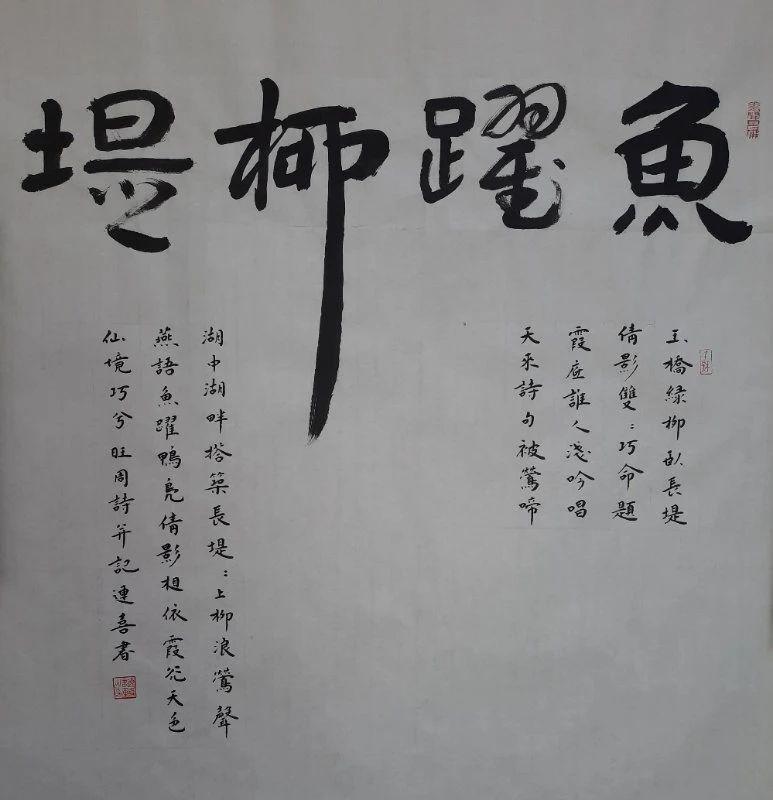 魚躍柳堤
玉橋緑柳臥長堤
倩影雙〻巧命題
霞底誰人淺吟唱
天來詩句被鶯啼
湖中湖畔搭築長堤〻上柳浪鶯聲
燕語魚躍鴨鳧倩影相依霞光天色
仙境巧兮旺周詩并記連喜書